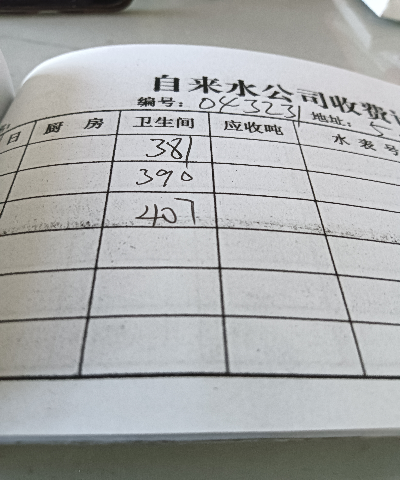 自来水公司收费
编号: 043231 地址: 5
日 厨 房 卫生间 应收吨 水表号
381
390
407